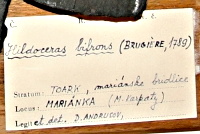 Hildoceras bifrons (BRUGIÈRE, 1789)
Stratum: TOARK, mariánske bridlice
Locus: MARIÁNKA (M. Karpaty)
Legit et det. D. ANDRUSOV,